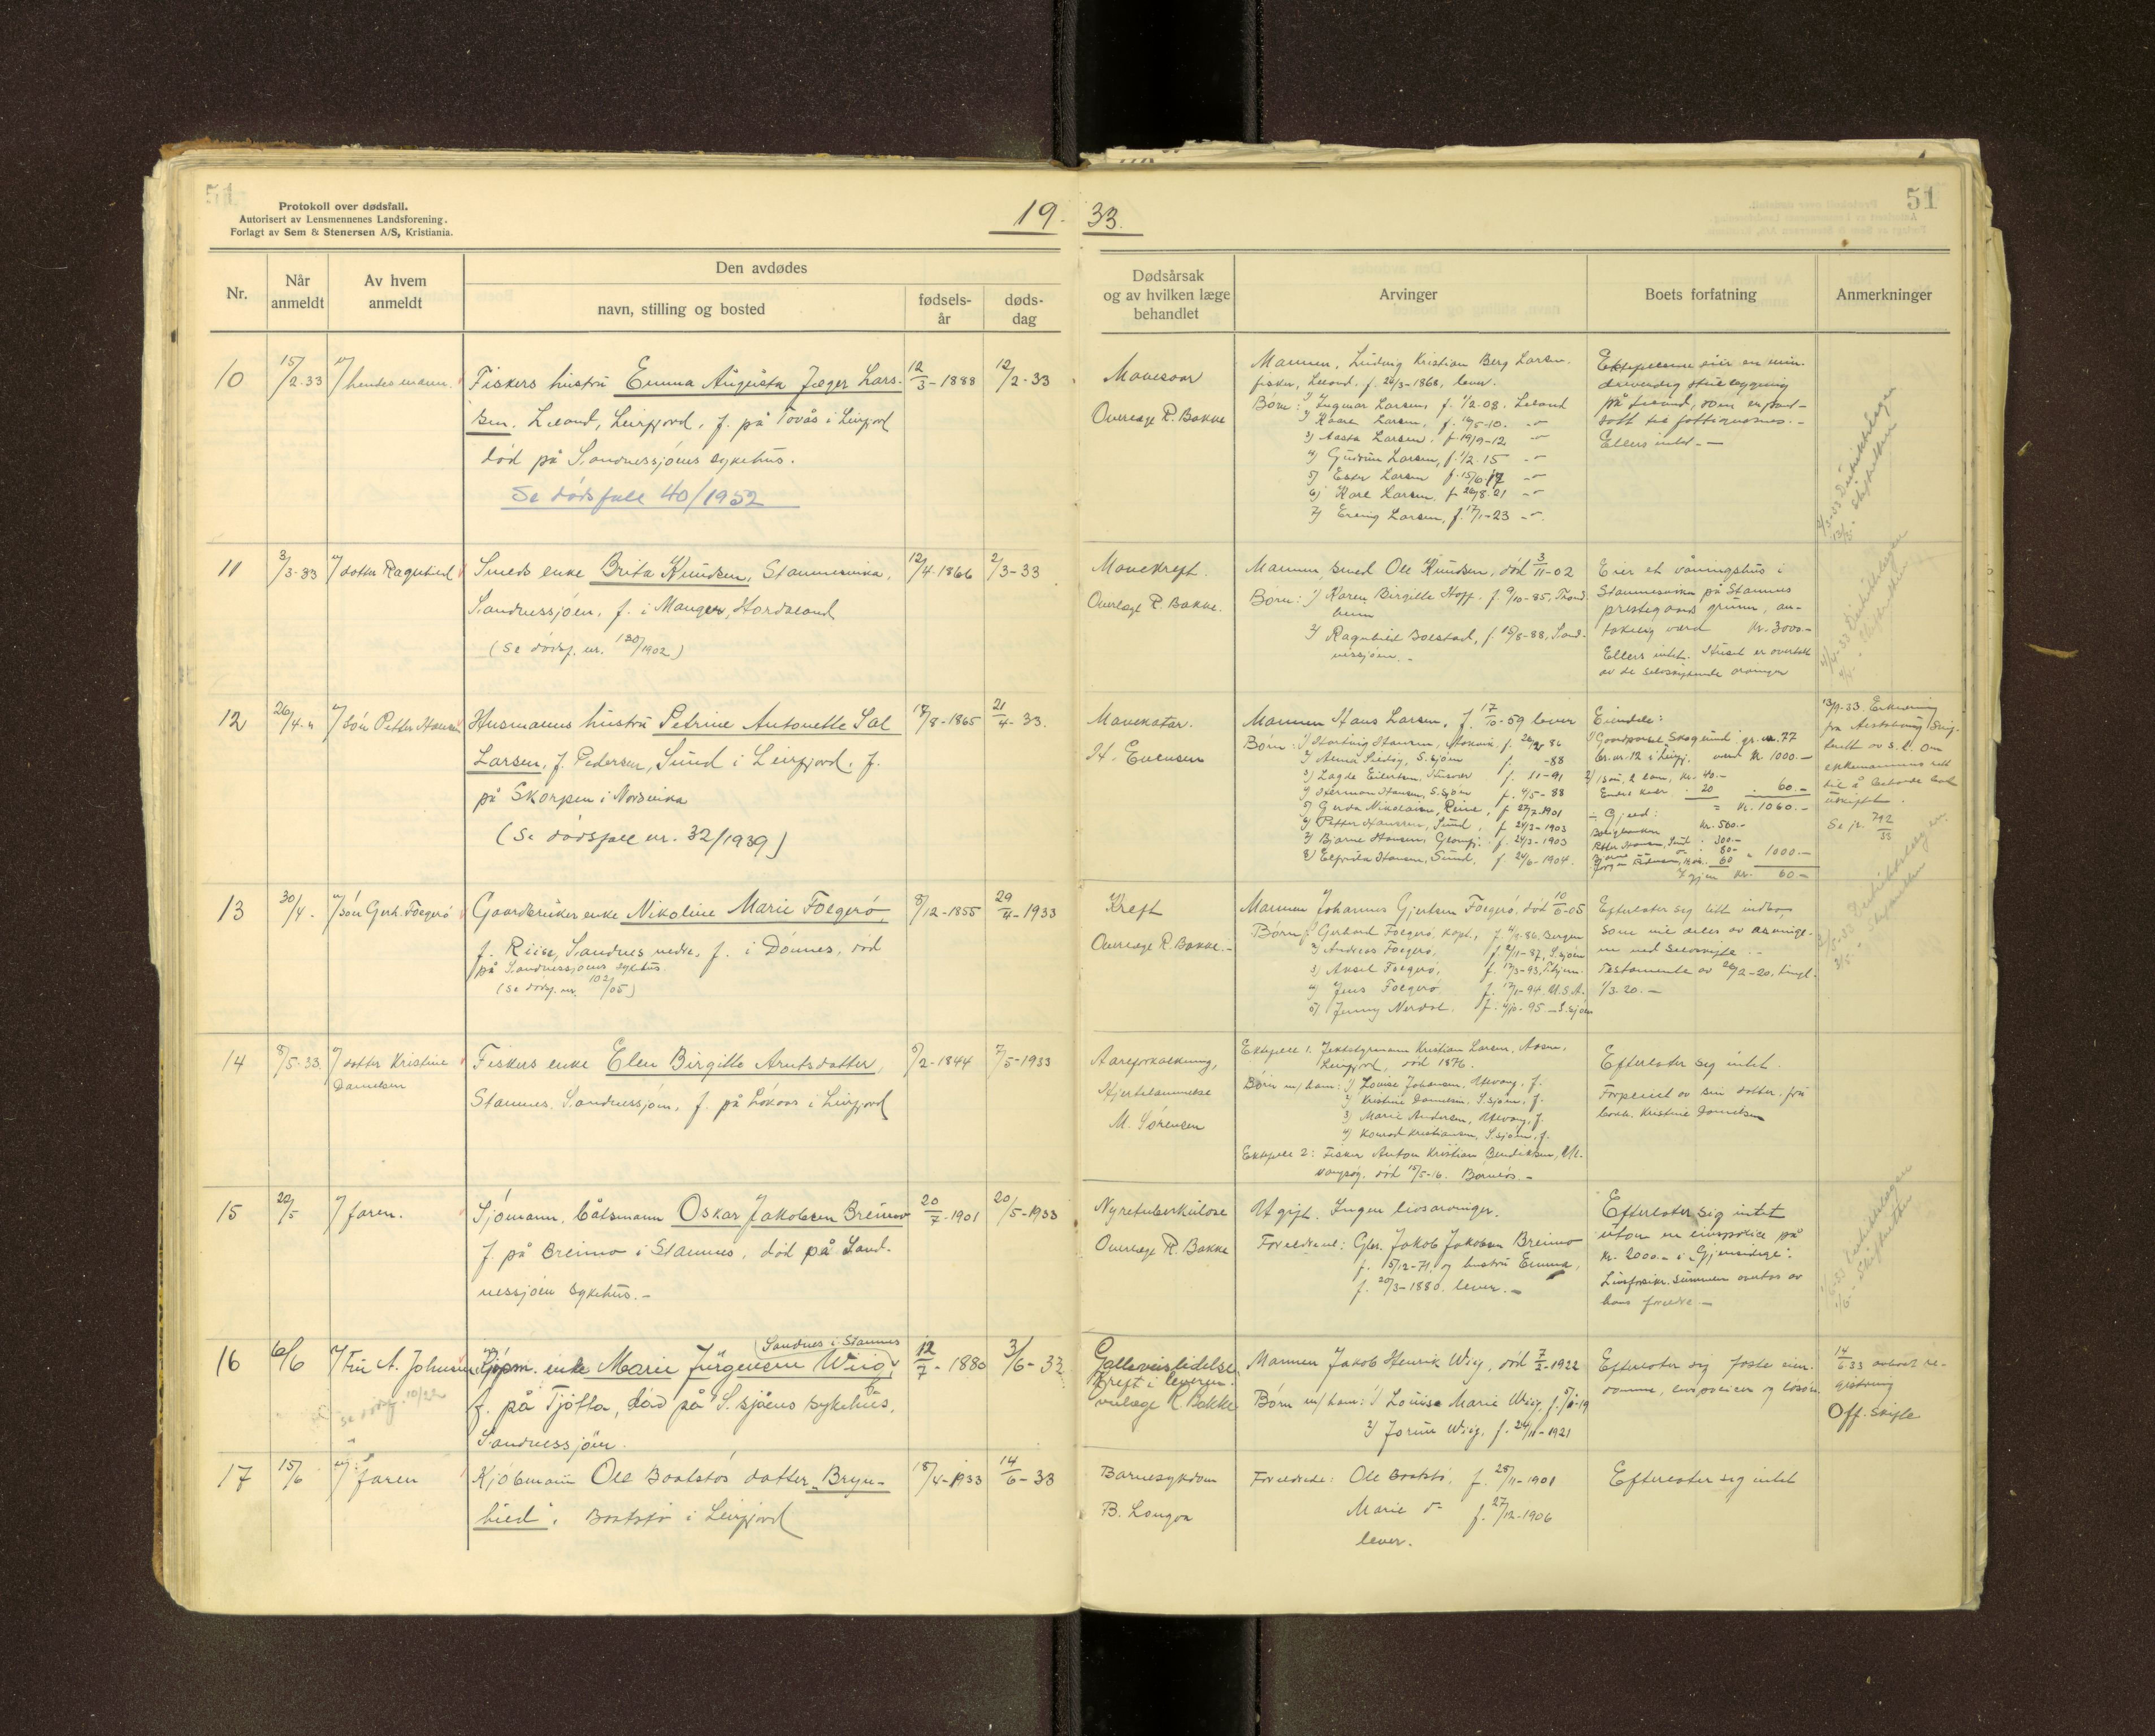 Protokoll over dødsfall.
Autorisert av Lensmennenes Landsforening.
Forlagt av Sem & Stenersen A/S, Kristiania.
19 33.
51
Nr.
Når anmeldt
Av hvem anmeldt
Den avdødes
navn, stilling og bosted
fødselsår
dødsdag
Dødsårsak og av hvilken læge behandlet
Arvinger
Boets forfatning
Anmerkninger
10 15/2-33 hendes mann.
Fiskers hustru Emma Augusta Jæger Lars-
sen, Leland, Leirfjord, f. på Tovås i Leirfjord
död på Sandnessjøens sykehus.
Se dødsfall 40/1952
12/3-1888 12/2-33
Mavesaar
Overlæge R. Bakke
Mannen, Ludvig Kristian Berg Larsen.
fisker, Leland, f. 26/3-1868, lever.
Børn: 1) Ingmar Larsen, f. 1/2-08. Leland
2) Kaare Larsen, f. 19/5-10.
3) Aasta Larsen, f. 19/9-12
4) Gudrun Larsen, f. 1/2-15
5) Ester Larsen f. 15/6-17
6) Kare Larsen f. 26/8-21
7) Erling Larsen, f. 17/1-23
på Leland, som er pant-
satt til fattigvæsnet.-
Ellers intet.-
11 3/3-33 datter Ragnhild
Smeds enke Brita Knudsen, Stamnesvika,
Sandnessjøen, f. i Manger, Hordaland
(Se dødsf. nr. 120/1902)
12/4-1866 2/3-33
Mavekreft.
Overlæge R. Bakke.
Mannen, smed Ole Knudsen, död 3/11-02
Børn: 1) Karen Birgitte Hoff. f. 9/10-85, Trond-
heim
2) Ragnhild Bolstad, f. 15/8-88, Sand-
nessjøen.-
Eier et våningshus i
Stamnesvika på Stamnes
prestegaards grunn, an-
takelig værd kr. 3000.-
Ellers intet. Huset er overtatt
av de selvskiftende arvinger
12 26/4-" sön Petter Hansen
Husmanns hustru Petrine Antonette Sal
Larsen, f. Pedersen, Sund i Leirfjord. f.
på Skorpen i Nordvika
(Se dødsfall nr. 32/1939)
17/8-1865 21/4-33.
Mavekatar.
H. Evensen
Mannen Hans Larsen, f. 17/10-59 lever
Børn: 1) Hartvig Hansen,
2) Anna S.sjøen f. -88
3) Lagde Eilertsen, f. 11-91
4) Herman Hansen, S.sjøen f. 4/5-88
5) Gerda Nikolaisen, Reine, f. 27/7-1901
6) Petter Hansen, Sund, f. 24/3-1903
7) Bjarne Hansen, Glomfj. f. 24/3-1903
8) Elfrida Hansen, Sund, f. 24/6-1904.
Eiendele:
1) Gaardparsel Skoglund gr. nr. 77
br. nr. 12 i Leirfj. verd kr. 1000.-
kr. 40.-
20 60.-
= kr. 1060.-
- Gjeld:
kr. 500.-
300.-
1000.-
kr. 60.-
13/9-33. Erklæring
enkemannens rett
til å beholde boet
uskiftet.
Se jr. 792/33
13 30/4. sön Gerh. Folgerö
Gaardbruker enke Nikoline Marie Folgerö,
f. Reise, Sandnes nedre, f. i Dönnes, död
på Sandnessjøens sykehus.
(Se dødsf. nr. 102/05)
8/12-1855 29/4-1933
Kreft
Overlæge R. Bakke.-
Mannen Johannes Gjertsen Folgerö, död 10/6-05
Børn 1) Gerhard Folgerö, kapt., f. 4/9-86, Bergen
2) Andreas Folgerö, f. 2/11-87, S.sjøen
3) Aksel Folgerö, f. 17/3-93,
4) Jens Folgerö f. 17/1-94. U.S.A.
5) Jenny Nerdal. f. 4/10-95 - S.sjøen
Efterlater sig litt indbo,
som vil deles av arvinge-
ne ved selvskifte.-
Testamente av 26/2-20, tingl.
1/3.20.-
14 8/5-33. datter Kristine
Danielsen
Fiskers enke Elen Birgitte Arntsdatter,
Stamnes, Sandnessjøen, f. på Lökaas i Leirfjord
5/2-1844 7/5-1933
Aareforkalkning,
Hjertelammelse
M. Sørensen
Ektefelle 1. Kristian Larsen,
Leirfjord, död 1876.
Børn m/ham: 1) Louise Johansen, Ulvang, f.
2) Kristine Danielsen, S.sjøen, f.
3) Marie Andersen, Ulvang, f.
4) Konrad Kristiansen, S.sjøen, f.
Ektefelle 2: Fisker Anton Kristian Bendiksen, Ul-
vangsög. död 15/5-16. Barnløs.-
Efterlater sig intet.
Forpleiet av sin datter, fru
Kristine Danielsen
15 20/5 faren.
Sjømann, båtsmann Oskar Jakobsen Breimo
f. på Breimo i Stamnes, död på Sand-
nessjøen sykehus.-
20/7-1901 20/5-1933
Nyretuberkulose
Overlæge R. Bakke
Ugift. Ingen livsarvinger.
Foreldrene: Gbr. Jakob Jakobsen Breimo
f. 5/12-71, og hustru Emma,
f. 20/3-1880. lever.-
Efterlater sig intet
uten en livspolice på
kr. 2000.- i "Gjensidige".
Livsforsikr. summen
hans foreldre.-
16 6/6 Fru A. Johnsen
Kjøpm. enke Marie Jürgensen Wiig,
Sandnes i Stamnes
f. på Tjøtta, död på S.sjøens sykehus,
Sandnessjøen.
se dødsf. 10/22
12/7-1880 3/6-33
Galleveislidelse
Kreft i leveren.
Overlæge R Bakke
Mannen Jakob Henrik Wiig, död 7/2-1922
Børn m/ham: 1) Louise Marie Wiig, f.
2) Jorun Wiig, f. 24/11-1921
Efterlater sig faste eien-
domme, livspolicer og løsøre.
14/6 33 avholdt re-
gistrering
Off. skifte
17 15/6 faren
Kjøbmann Ole Baatstøs datter "Bryn-
hild", Baatstø i Leirfjord
18/4-1933 14/6-33
Barnesykdom
B. Langva
Foreldrene: Ole Baatstø, f. 25/11-1901
Marie f. 27/12-1906
lever.
Efterlater sig intet